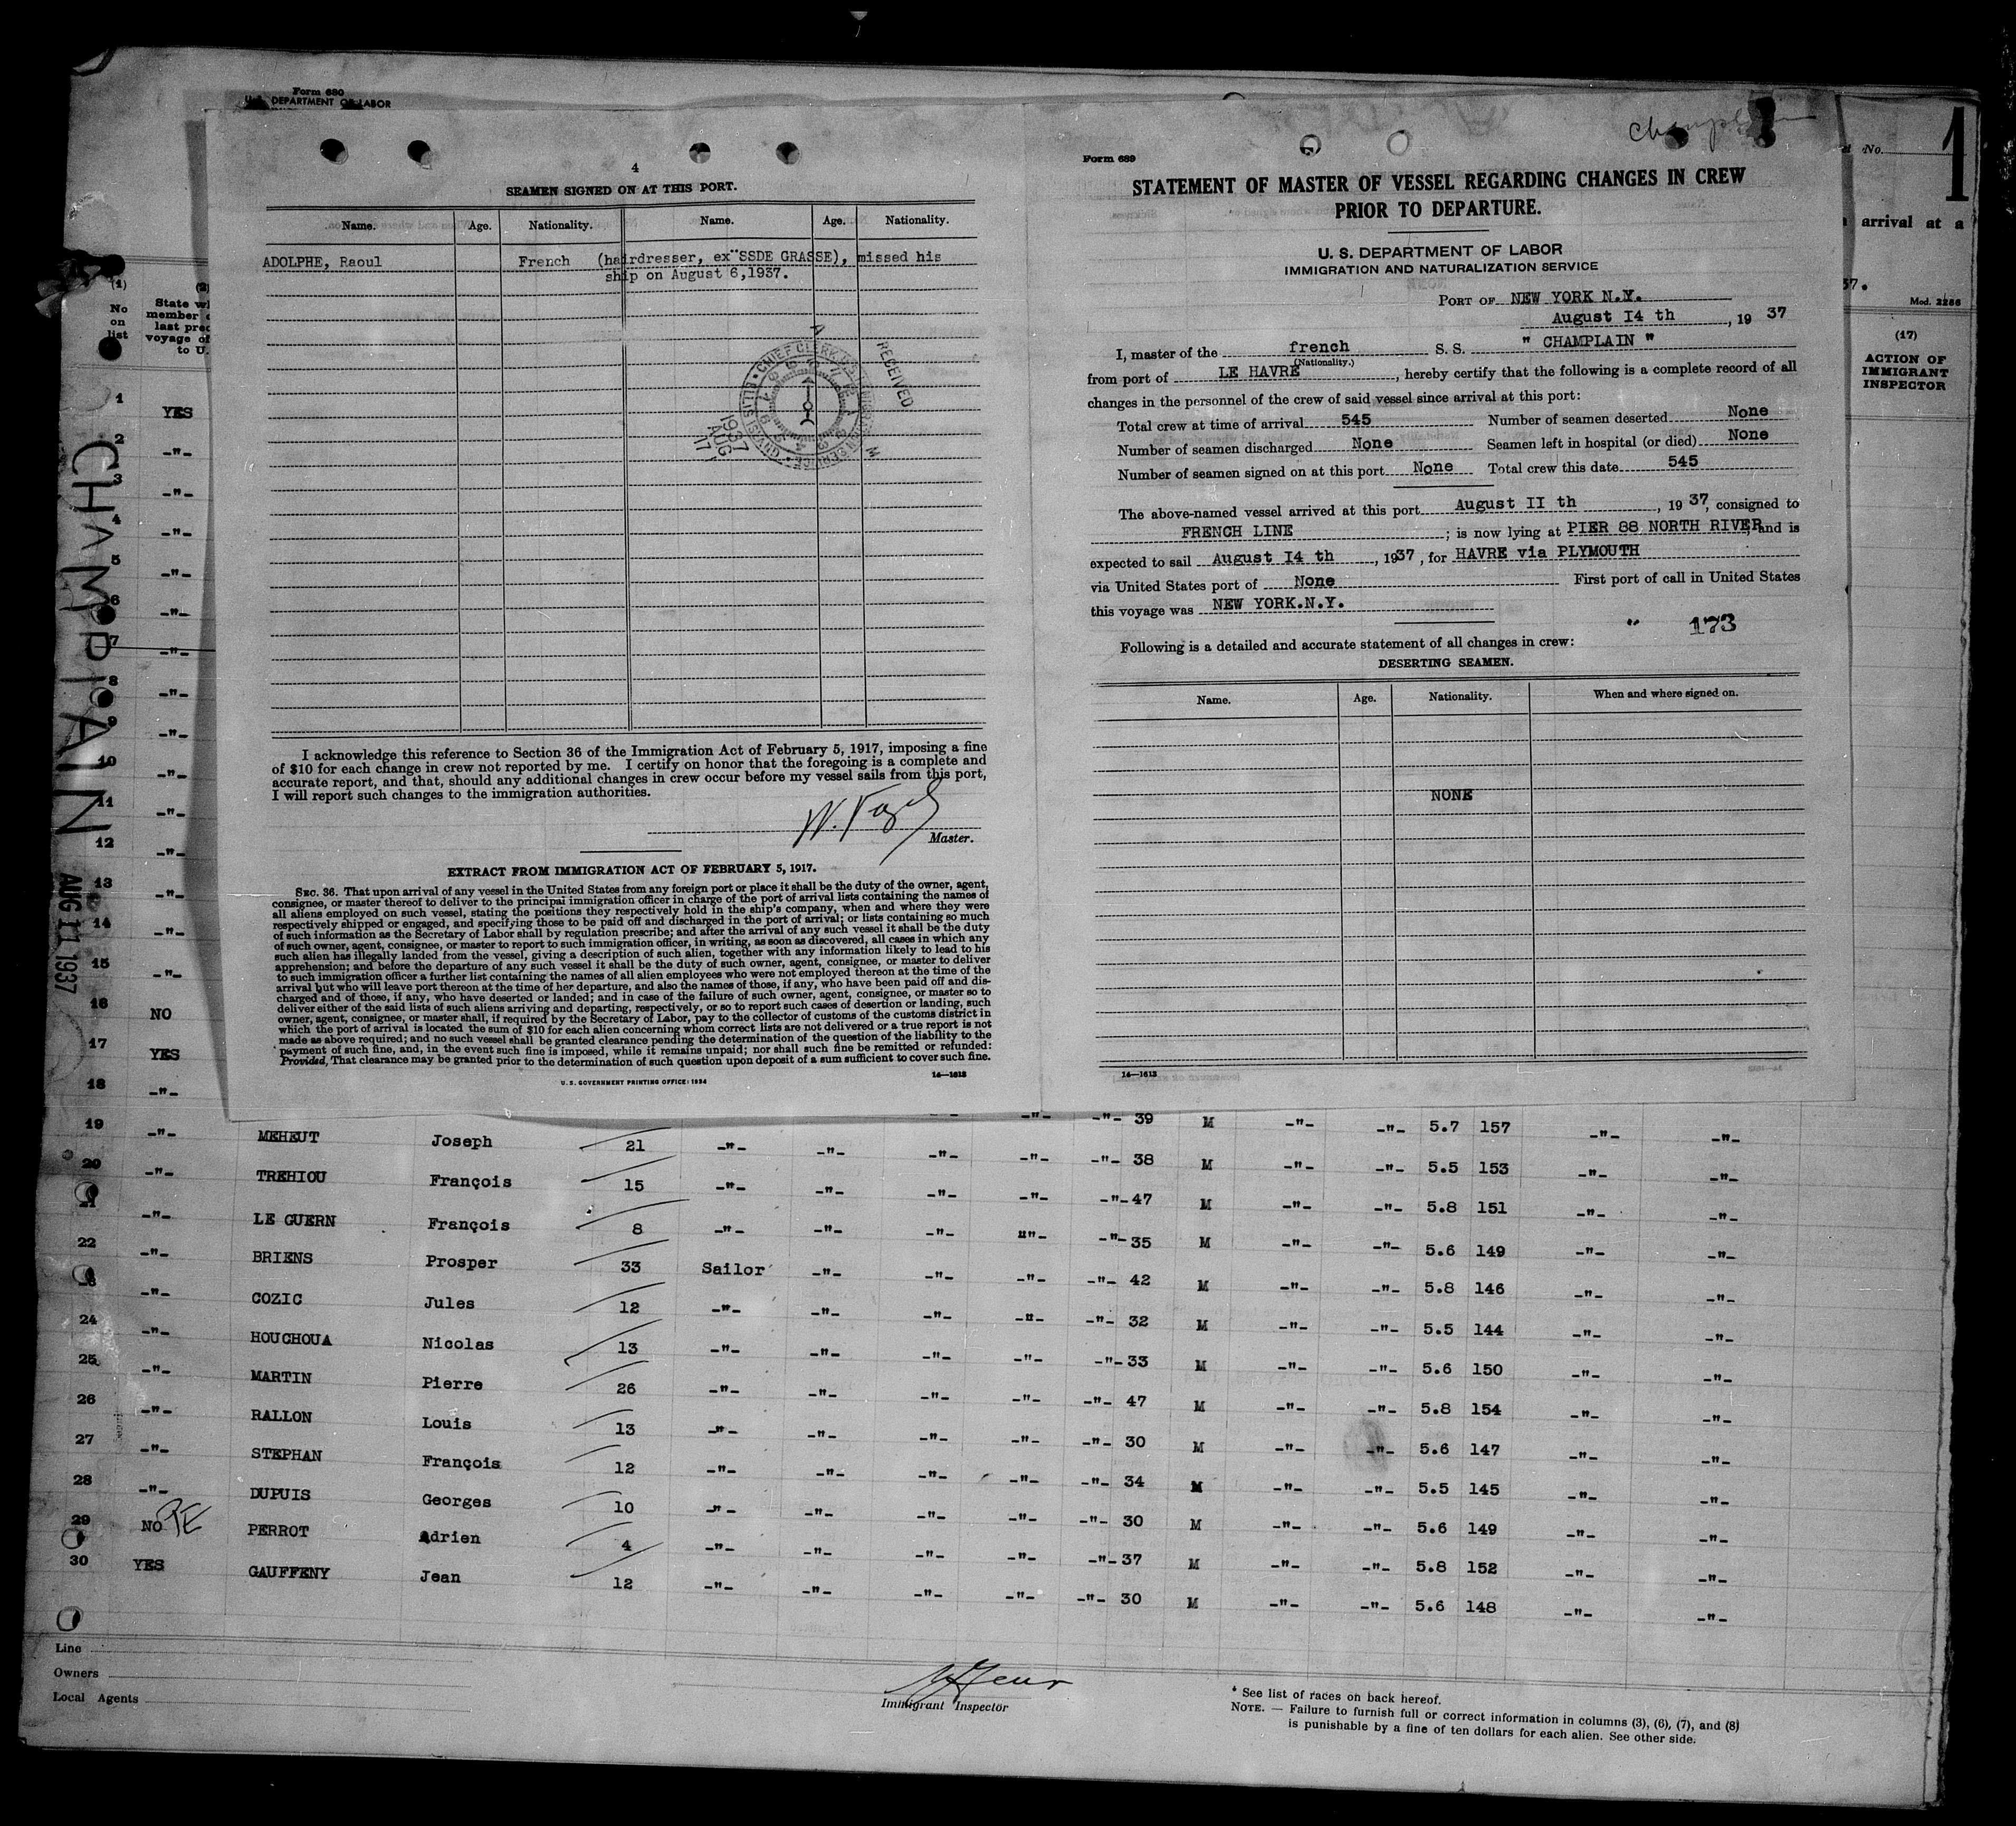 Form 680
U. S. DEPARTMENT OF LABOR
4
SEAMEN SIGNED ON AT THIS PORT.
Name. Age. Nationality. Name. Age. Nationality.
ADOLPHE, Raoul French (hairdresser, ex¨SSDE GRASSE), missed his
ship on August 6,1937.
RECEIVED
1937
AUG
17
I acknowledge this reference to Section 36 of the Immigration Act of February 5, 1917, imposing a fine
of $10 for each change in crew not reported by me. I certify on honor that the foregoing is a complete and
accurate report, and that, should any additional changes in crew occur before my vessel sails from this port,
I will report such changes to the immigration authorities.
Master.
EXTRACT FROM IMMIGRATION ACT OF FEBRUARY 5, 1917.
SEC. 36. That upon arrival of any vessel in the United States from any foreign port or place it shall be the duty of the owner, agent,
consignee, or master thereof to deliver to the principal immigration officer in charge of the port of arrival lists containing the names of
all aliens employed on such vessel, stating the positions they respectively hold in the ship's company, when and where they were
respectively shipped or engaged, and specifying those to be paid off and discharged in the port of arrival; or lists containing so much
of such information as the Secretary of Labor shall by regulation prescribe; and after the arrival of any such vessel it shall be the duty
of such owner, agent, consignee, or master to report to such immigration officer, in writing, as soon as discovered, all cases in which any
such alien has illegally landed from the vessel, giving a description of such alien, together with any information likely to lead to his
apprehension; and before the departure of any such vessel it shall be the duty of such owner, agent, consignee, or master to deliver
to such immigration officer a further list containing the names of all alien employees who were not employed thereon at the time of the
arrival but who will leave port thereon at the time of her departure, and also the names of those, if any, who have been paid off and dis-
charged and of those, if any, who have deserted or landed; and in case of the failure of such owner, agent, consignee, or master so to
deliver either of the said lists of such aliens arriving and departing, respectively, or so to report such cases of desertion or landing, such
owner, agent, consignee, or master shall, if required by the Secretary of Labor, pay to the collector of customs of the customs district in
which the port of arrival is located the sum of $10 for each alien concerning whom correct lists are not delivered or a true report is not
made as above required; and no such vessel shall be granted clearance pending the determination of the question of the liability to the
payment of such fine, and, in the event such fine is imposed, while it remains unpaid; nor shall such fine be remitted or refunded:
Provided, That clearance may be granted prior to the determination of such question upon deposit of a sum sufficient to cover such fine.
U. S. GOVERNMENT PRINTING OFFICE: 1934 14—1613
Champlain
Form 689
STATEMENT OF MASTER OF VESSEL REGARDING CHANGES IN CREW
PRIOR TO DEPARTURE.
U. S. DEPARTMENT OF LABOR
IMMIGRATION AND NATURALIZATION SERVICE
PORT OF NEW YORK N.Y.
August I4 th, 19 37
I, master of the french S. S. " CHAMPLAIN "
(Nationality.)
from port of LE HAVRE, hereby certify that the following is a complete record of all
changes in the personnel of the crew of said vessel since arrival at this port:
Total crew at time of arrival 545 Number of seamen deserted None
Number of seamen discharged None Seamen left in hospital (or died) None
Number of seamen signed on at this port None Total crew this date 545
The above-named vessel arrived at this port August II th, 19 37, consigned to
FRENCH LINE; is now lying at PIER 88 NORTH RIVER, and is
expected to sail August I4 th, 1937, for HAVRE via PLYMOUTH
via United States port of None First port of call in United States
this voyage was NEW YORK.N.Y.
173
Following is a detailed and accurate statement of all changes in crew:
DESERTING SEAMEN.
Name. Age. Nationality. When and where signed on.
NONE
14—1613
No. 1
arrival at a
37.
Mod. 2256
(17)
ACTION OF
IMMIGRANT
INSPECTOR
(1)
No
on
list
(2)
State wh
member o
last prec
voyage of
to U.
CHAMPLAIN
AUG 11 1937
1 YES
2 -"-
3 -"-
4 -"-
5 -"-
6 -"-
7 -"-
8 -"-
9 -"-
10 -"-
11 -"-
12 -"-
13 -"-
14 -"-
15 -"-
16 NO
17 YES
18 -"-
-"- -"- 39 M -"- -"- 5.7 157 -"- -"-
19 -"- MEHEUT Joseph 21 -"- -"- -"- -"- -"- 38 M -"- -"- 5.5 153 -"- -"-
20 -"- TREHIOU François 15 -"- -"- -"- -"- -"- 47 M -"- -"- 5.8 151 -"- -"-
21 -"- LE GUERN François 8 -"- -"- -"- -"- -"- 35 M -"- -"- 5.6 149 -"- -"-
22 -"- BRIENS Prosper 33 Sailor -"- -"- -"- -"- 42 M -"- -"- 5.8 146 -"- -"-
23 -"- COZIC Jules 12 -"- -"- -"- -"- -"- 32 M -"- -"- 5.5 144 -"- -"-
24 -"- HOUCHOUA Nicolas 13 -"- -"- -"- -"- -"- 33 M -"- -"- 5.6 150 -"- -"-
25 -"- MARTIN Pierre 26 -"- -"- -"- -"- -"- 47 M -"- -"- 5.8 154 -"- -"-
26 -"- RALLON Louis 13 -"- -"- -"- -"- -"- 30 M -"- -"- 5.6 147 -"- -"-
27 -"- STEPHAN François 12 -"- -"- -"- -"- -"- 34 M -"- -"- 5.5 145 -"- -"-
28 -"- DUPUIS Georges 10 -"- -"- -"- -"- -"- 30 M -"- -"- 5.6 149 -"- -"-
29 NO PE PERROT Adrien 4 -"- -"- -"- -"- -"- 37 M -"- -"- 5.8 152 -"- -"-
30 YES GAUFFENY Jean 12 -"- -"- -"- -"- -"- 30 M -"- -"- 5.6 148 -"- -"-
Line
Owners
Local Agents
Immigrant Inspector
* See list of races on back hereof.
NOTE. — Failure to furnish full or correct information in columns (3), (6), (7), and (8)
is punishable by a fine of ten dollars for each alien. See other side.